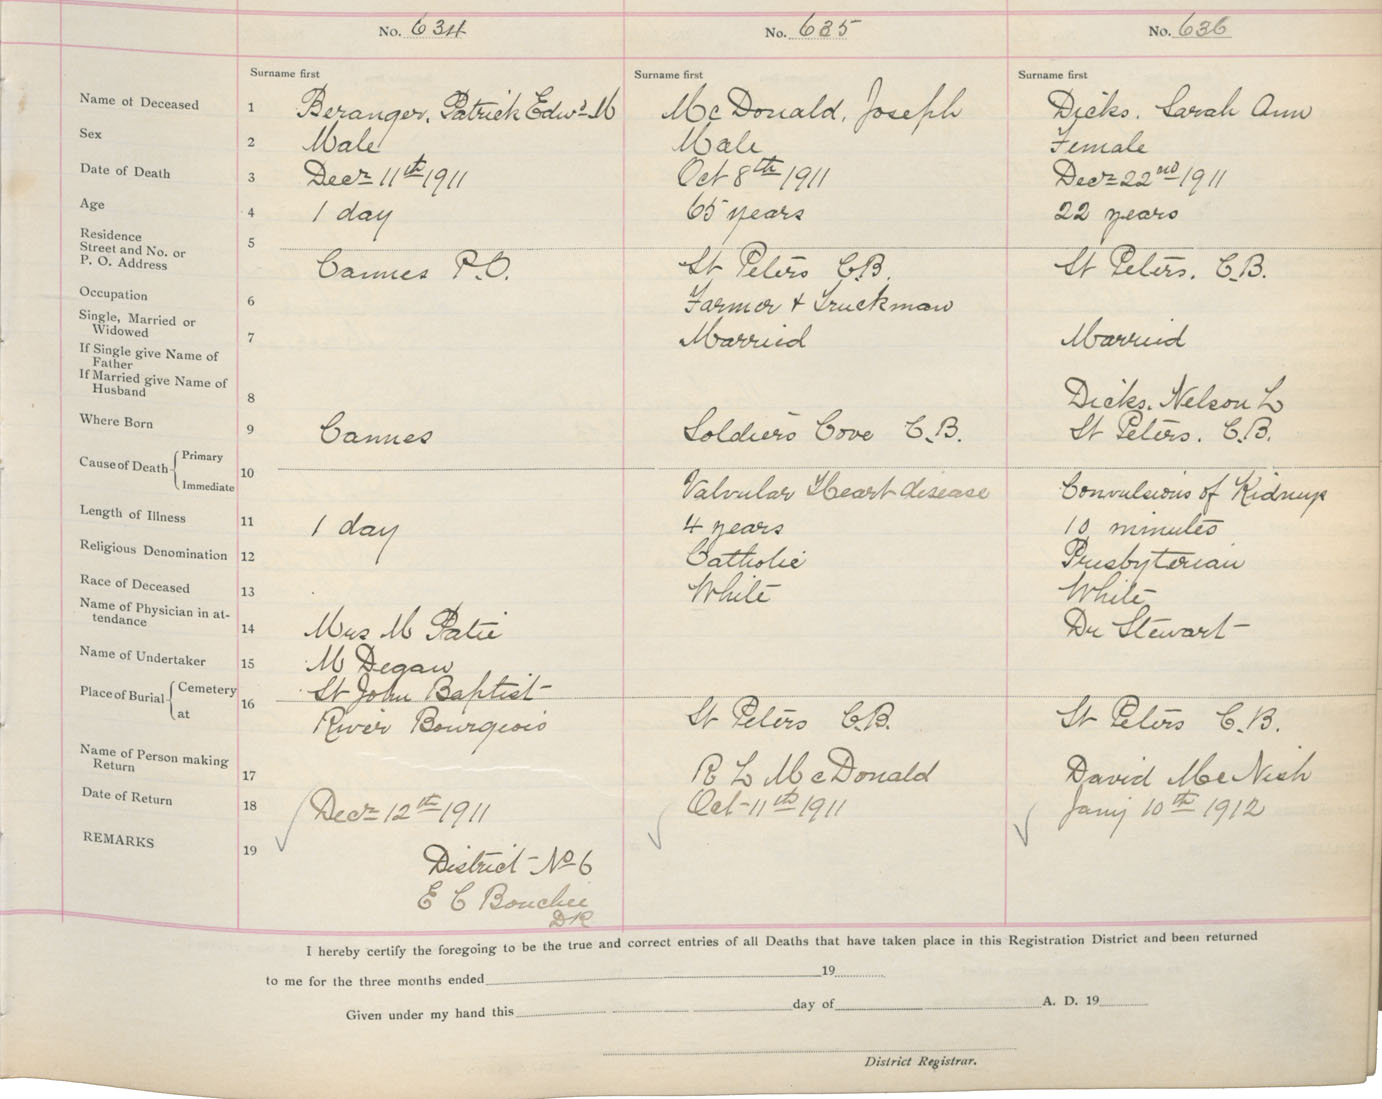 No. 634 No. 635 No. 636
Surname first Surname first Surname first
Name of Deceased 1 Beranger, Patrick Edwd M McDonald, Joseph Dicks, Sarah Ann
Sex 2 Male Male Female
Date of Death 3 Decr 11th 1911 Oct 8th 1911 Decr 22nd 1911
Age 4 1 day 65 years 22 years
Residence
Street and No. or 5
P. O. Address Cannes P.O. St Peters C.B. St Peters. C.B.
Occupation 6 Farmer & Truckman
Single, Married or
Widowed 7 Married Married
If Single give Name of
Father
If Married give Name of
Husband 8 Dicks, Nelson L
Where Born 9 Cannes Soldiers Cove C.B. St Peters. C.B.
Cause of Death Primary
Immediate 10 Valvular Heart disease Convulsions of Kidneys
Length of Illness 11 1 day 4 years 10 minutes
Religious Denomination 12 Catholic Presbyterian
Race of Deceased 13 White White
Name of Physician in at-
tendance 14 Mrs M Patie Dr Stewart
Name of Undertaker 15 M Degan
Place of Burial Cemetery 16 St John Baptist
at River Bourgeois St Peters C.B. St Peters C.B.
Name of Person making
Return 17 R L McDonald David McNish
Date of Return 18 Decr 12th 1911 Oct 11th 1911 Jany 10th 1912
REMARKS 19
District No 6
E C Bouchie
DR
I hereby certify the foregoing to be the true and correct entries of all Deaths that have taken place in this Registration District and been returned
to me for the three months ended 19
Given under my hand this day of A. D. 19
District Registrar.